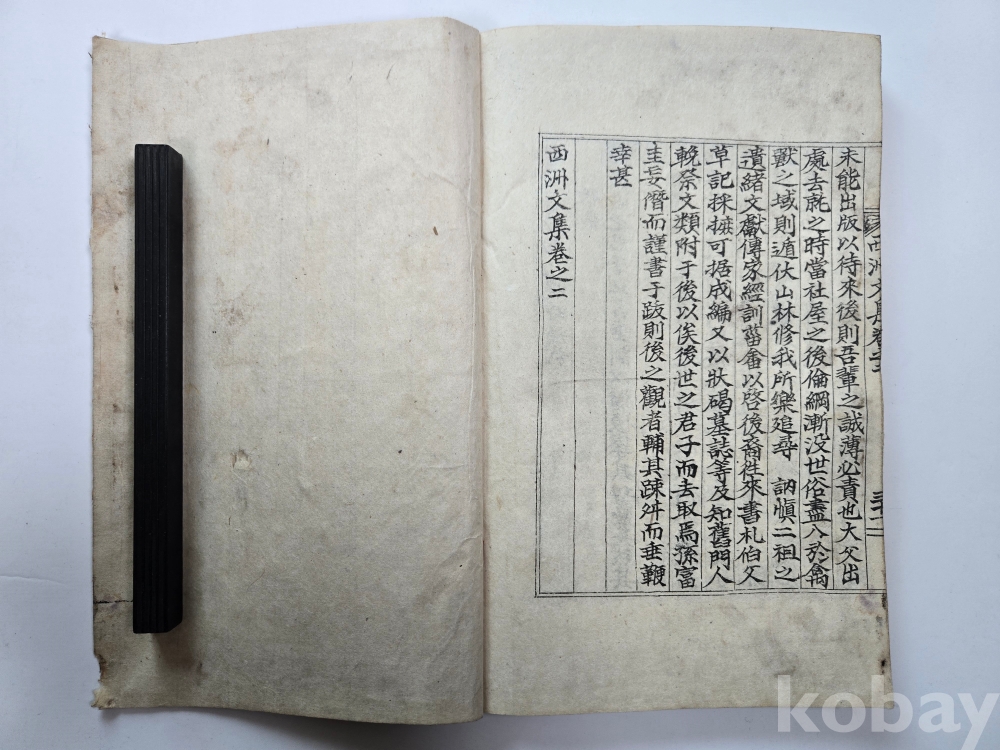 西洲文集卷之二
未能出版以待來後則吾輩之誠薄必責也大父出
處去就之時當社屋之後倫綱漸没世俗盡入於禽
獸之域則遁伏山林修我所樂追尋 訥愼二祖之
遺緖文獻傳家經訓菑畬以啓後裔徃來書札伯父
草記採摭可据成編又以狀碣墓誌等及知舊門人
輓祭文類附于後以俟後世之君子而去取焉孫富
圭妄僭而謹書于跋則後之觀者輔其踈舛而垂鞭
幸甚
西洲文集卷之二
kobay